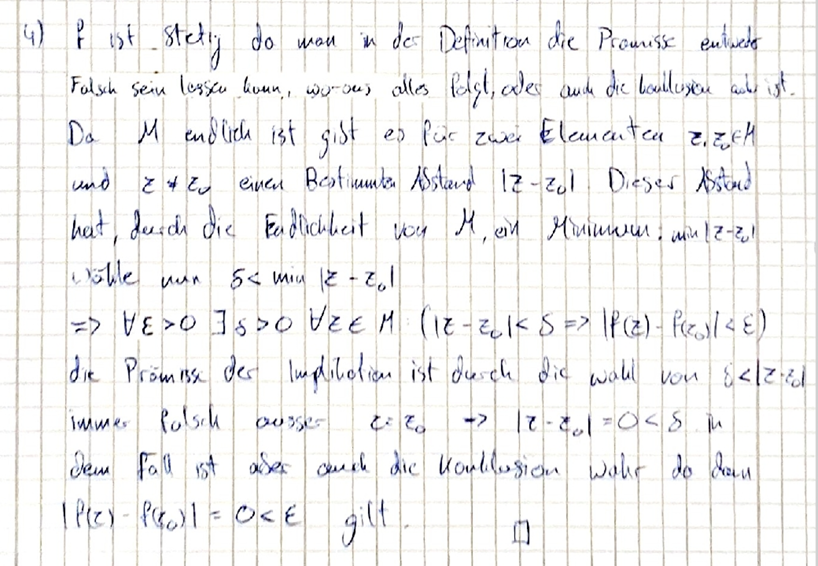 4) f ist stetig da man in der Definition die Prämisse entweder
Falsch sein lassen kann, wo-raus alles folgt, oder auch die Konklusion wahr ist.
Da M endlich ist gibt es für zwei Elementen z, z₀ ∈ M
und z ≠ z₀ einen Bestimmten Abstand |z - z₀|. Dieser Abstand
hat, durch die Endlichkeit von M, ein Minimum: min |z - z₀|
Wähle nun δ < min |z - z₀|
=> ∀ε>0 ∃δ>0 ∀z∈M: (|z - z₀| < δ => |f(z) - f(z₀)| < ε)
die Prämisse der Implikation ist durch die wahl von δ < |z - z₀|
immer falsch ausser z = z₀ -> |z - z₀| = 0 < δ. In
dem Fall ist aber auch die Konklusion wahr da dann
|f(z) - f(z₀)| = 0 < ε gilt. □